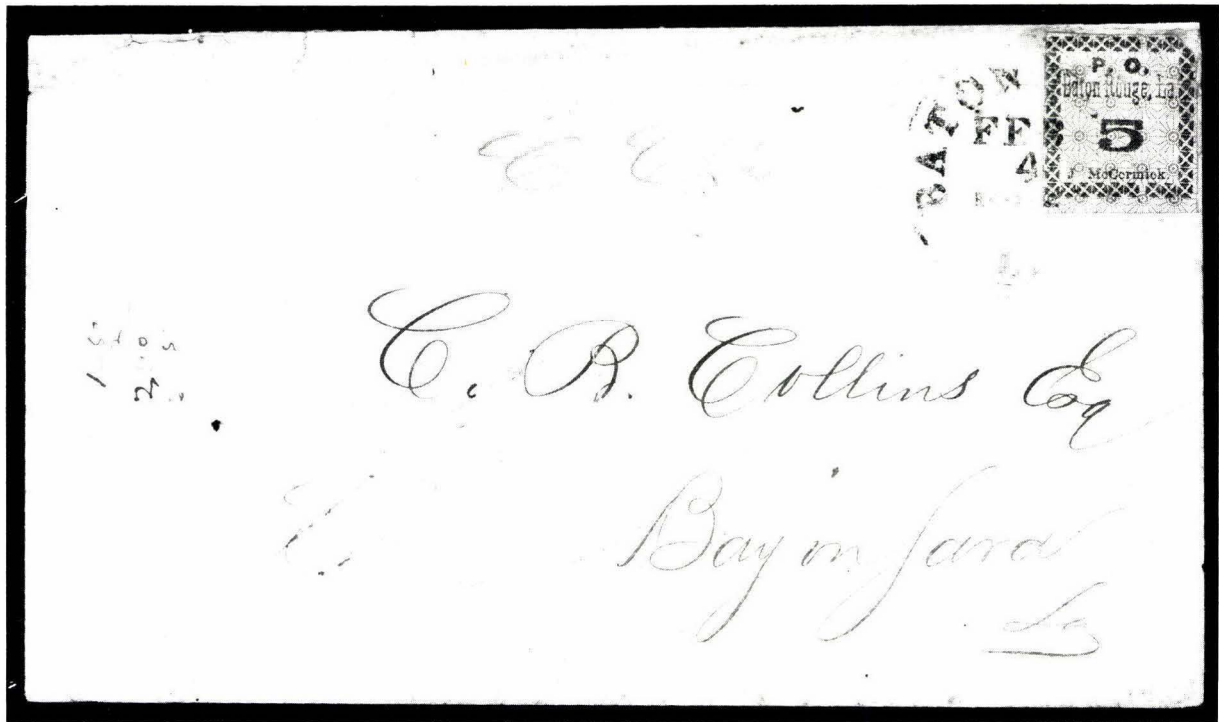 BATON
FE
4
P. O.
Baton Rouge, La
5
J McCormick.
C. B. Collins Esq
Bayou Sara
La